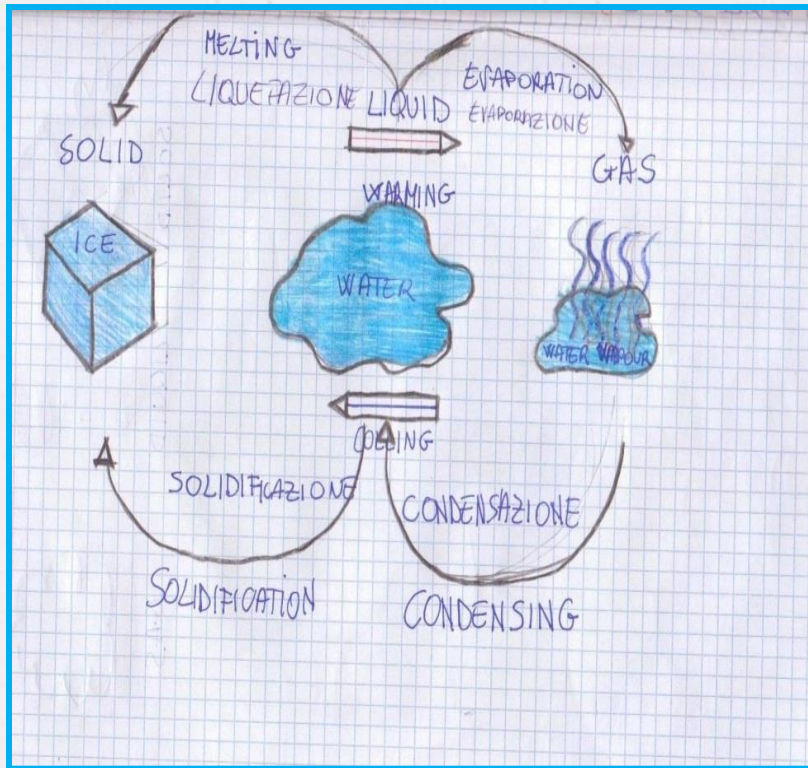 MELTING
LIQUEFAZIONE
LIQUID
EVAPORATION
EVAPORAZIONE
SOLID
GAS
WARMING
ICE
WATER
WATER VAPOUR
COOLING
SOLIDIFICAZIONE
CONDENSAZIONE
SOLIDIFICATION
CONDENSING